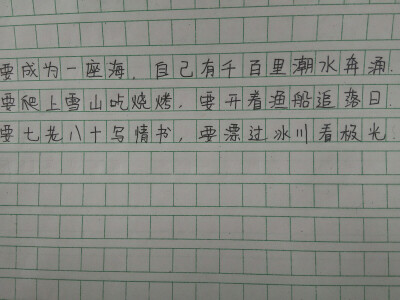 要成为一座海，自己有千百里潮水奔涌.
要爬上雪山吃烧烤，要开着渔船追落日.
要七老八十写情书，要漂过冰川看极光.